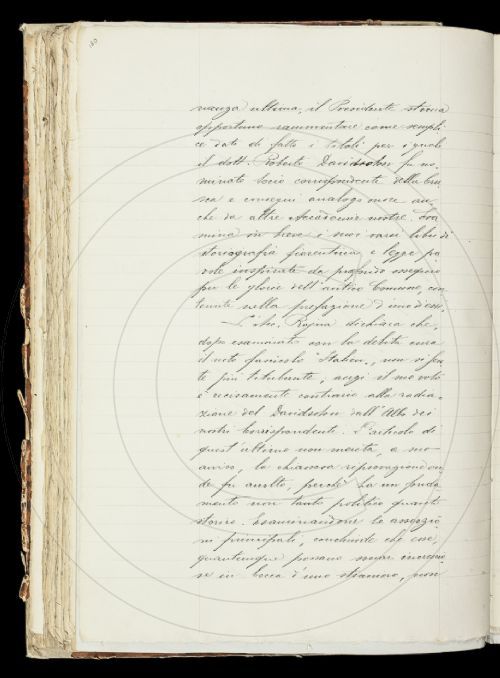 180
nanza ultima, il Presidente stima
opportuno rammentare come sempli
ce dato di fatto i titoli per i quali
il dott. Roberto Davidsohn fu no-
minato Socio corrispondente della Cru
sca e conseguì analogo onore an-
che da altre Accademie nostre.
mina in breve i suoi varii libri di
storiografia fiorentina e legge pa
role inspirate da profondo ossequio
per le glorie dell'antico Comune, con
tenute nella prefazione d'uno d'essi.
L'Acc. Rajna dichiara che,
dopo esaminato con la debita cura
il noto fascicolo "Italien", non si sen
te più titubante, anzi il suo voto
è recisamente contrario alla radia-
zione del Davidsohn dall'Albo dei
nostri Corrispondenti. L'articolo di
quest'ultimo non merita, a suo
avviso, la chiassosa riprovazione on-
de fu accolto, perchè ha un fonda
mento non tanto politico quanto
storico. Esaminandone le asserzio
ni principali, conclude che esse,
quantunque possano suonar incresciose
in bocca d'uno straniero, non